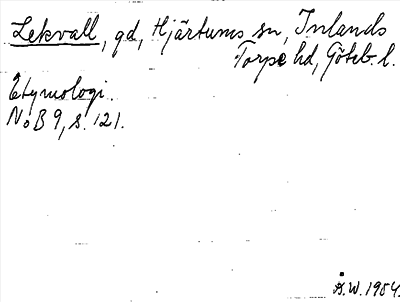 Lekvall, gd, Hjärtums sn, Inlands
Torpe hd, Göteb. l.
Etymologi.
NoB 9, s. 121.
Å.W. 1954.